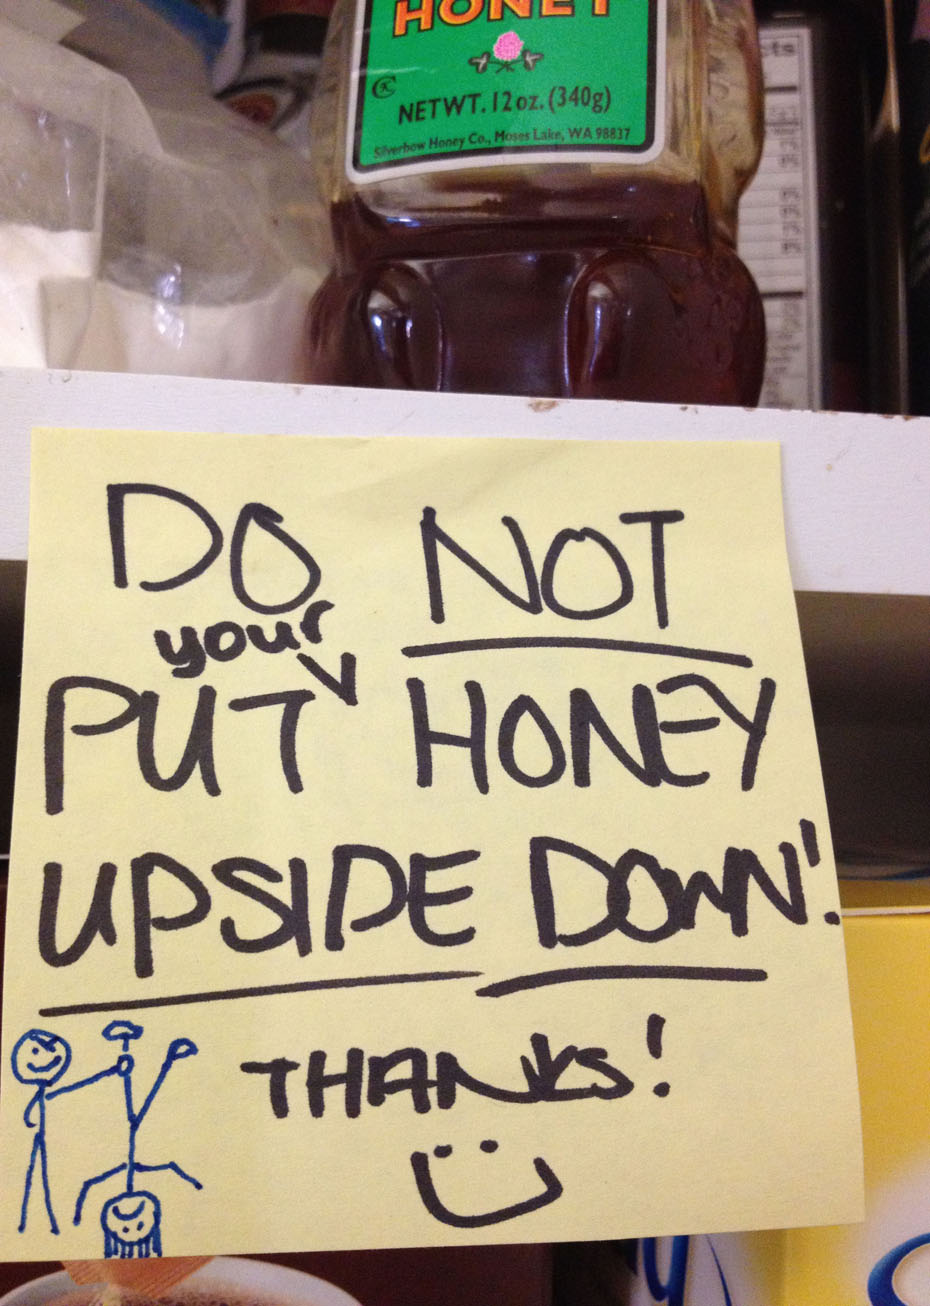 HONEY
NET WT. 12 oz. (340g)
Silverbow Honey Co., Moses Lake, WA 98837
DO NOT
your
PUT HONEY
UPSIDE DOWN!
THANKS!